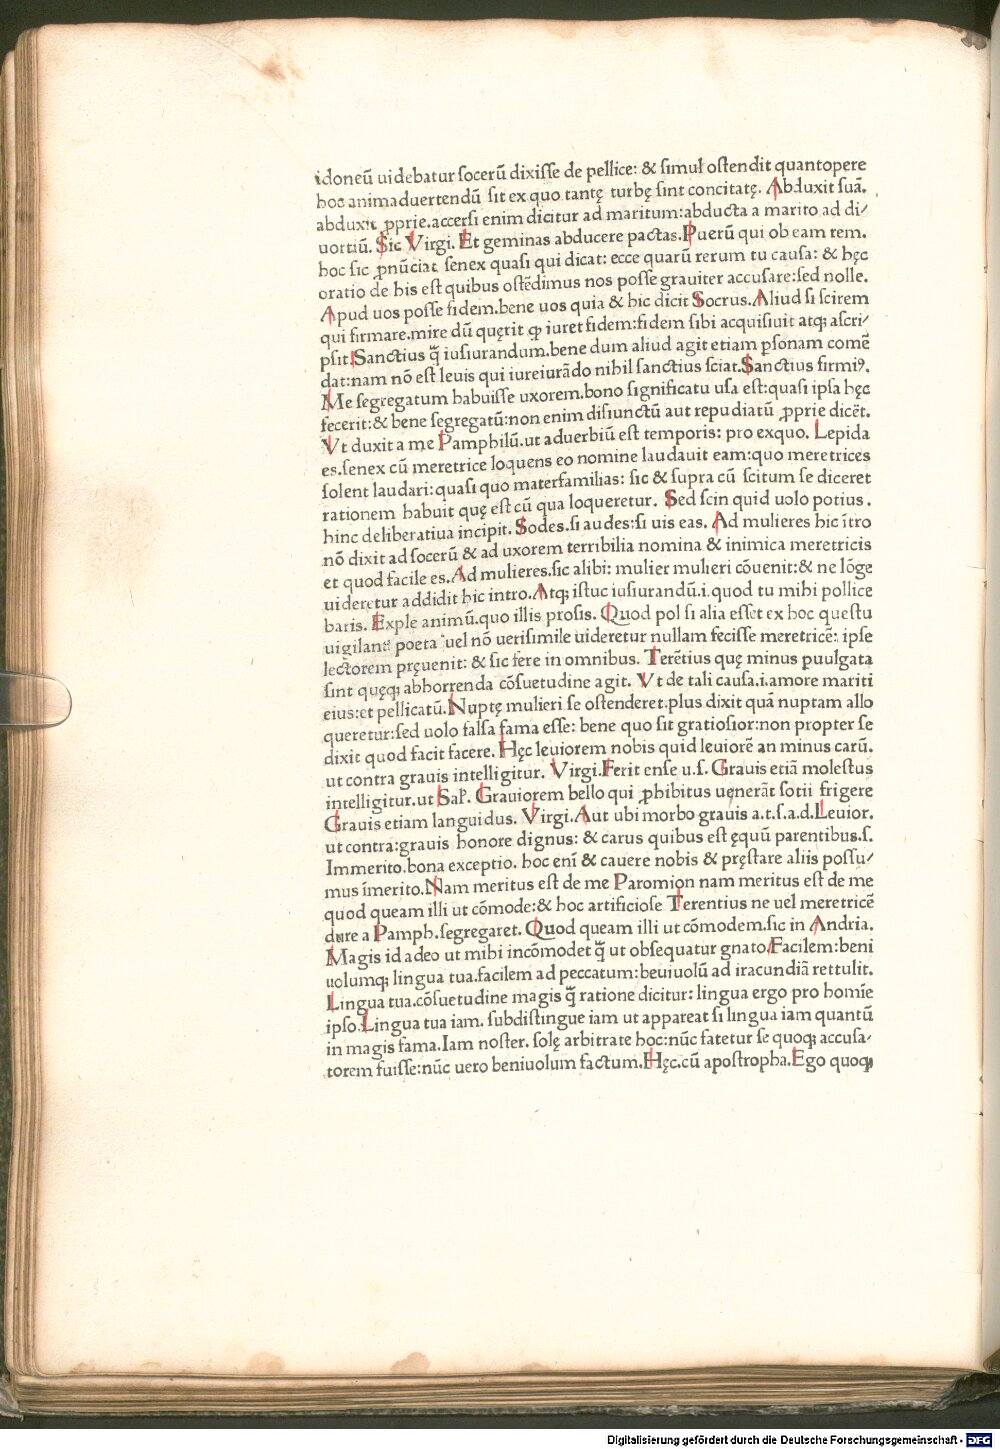 idoneū uidebatur ſocerū dixiſſe de pellice: & ſimul oſtendit quantopere
hoc animaduertendū ſit ex quo tantę turbę ſint concitatę. Abduxit ſuā.
abduxit ꝓprie.accerſi enim dicitur ad maritum:abducta a marito ad di⸗
uortiū. Sic Virgi. Et geminas abducere pactas.Puerū qui ob eam rem.
hoc ſic ꝓnūciat ſenex quaſi qui dicat: ecce quarū rerum tu cauſa: & hęc
oratio de his eſt quibus oſtēdimus nos poſſe grauiter accuſare:ſed nolle.
Apud uos poſſe fidem.bene uos quia & hic dicit Socrus. Aliud ſi ſcirem
qui firmare.mire dū quęrit ꝙ iuret fidem:fidem ſibi acquiſiuit atqꝫ aſcri⸗
pſit.Sanctius q̄̃ iuſiurandum.bene dum aliud agit etiam ꝑſonam comē
dat:nam nō eſt leuis qui iureiurādo nihil ſanctius ſciat.Sanctius firmiꝰ.
Me ſegregatum habuiſſe uxorem.bono ſignificatu uſa eſt:quaſi ipſa hęc
fecerit:& bene ſegregatū:non enim diſiunctū aut repudiatū ꝓprie dicēt.
Vt duxit a me Pamphilū.ut aduerbiū eſt temporis: pro exquo. Lepida
es.ſenex cū meretrice loquens eo nomine laudauit eam:quo meretrices
ſolent laudari:quaſi quo materfamilias: ſic & ſupra cū ſcitum ſe diceret
rationem habuit quę eſt cū qua loqueretur. Sed ſcin quid uolo potius.
hinc deliberatiua incipit. Sodes.ſi audes:ſi uis eas. Ad mulieres hic ītro
nō dixit ad ſocerū & ad uxorem terribilia nomina & inimica meretricis
et quod facile es.Ad mulieres.ſic alibi: mulier mulieri cōuenit:& ne lōge
uideretur addidit hic intro.Atqꝫ iſtuc iuſiurandū.i.quod tu mihi pollice
baris. Exple animū.quo illis proſis. Quod pol ſi alia eſſet ex hoc queſtu
uigilant poeta uel nō ueriſimile uideretur nullam feciſſe meretricē: ipſe
lectorem pręuenit: & ſic fere in omnibus. Terētius quę minus puulgata
ſint quęqꝫ abhorrenda cōſuetudine agit. Vt de tali cauſa.i.amore mariti
eius:et pellicatū.Nuptę mulieri ſe oſtenderet.plus dixit quā nuptam allo
queretur:ſed uolo falſa fama eſſe: bene quo ſit gratioſior:non propter ſe
dixit quod facit facere. Hęc leuiorem nobis quid leuiorē an minus carū.
ut contra grauis intelligitur. Virgi.Ferit enſe u.ſ. Grauis etiā moleſtus
intelligitur.ut Saꝉ. Grauiorem bello qui ꝓhibitus uęnerāt ſotii frigere
Grauis etiam languidus. Virgi.Aut ubi morbo grauis a.t.ſ.a.d.Leuior.
ut contra:grauis honore dignus: & carus quibus eſt ęquū parentibus.ſ.
Immerito.bona exceptio. hoc enī & cauere nobis & pręſtare aliis poſſu⸗
mus īmerito.Nam meritus eſt de me Paromion nam meritus eſt de me
quod queam illi ut cōmode:& hoc artificioſe Terentius ne uel meretricē
dure a Pamph.ſegregaret. Quod queam illi ut cōmodem.ſic in Andria.
Magis id adeo ut mihi incōmodet q̄̃ ut obſequatur gnato.Facilem:beni
uolumqꝫ lingua tua.facilem ad peccatum:beuiuolū ad iracundiā rettulit.
Lingua tua.cōſuetudine magis q̄̃ ratione dicitur: lingua ergo pro homīe
ipſo.Lingua tua iam. ſubdiſtingue iam ut appareat ſi lingua iam quantū
in magis fama.Iam noſter. ſolę arbitrate hoc:nūc fatetur ſe quoqꝫ accuſa⸗
torem fuiſſe:nūc uero beniuolum factum.Hęc.cū apoſtropha.Ego quoqꝫ
Digitalisierung gefördert durch die Deutsche Forschungsgemeinschaft - DFG